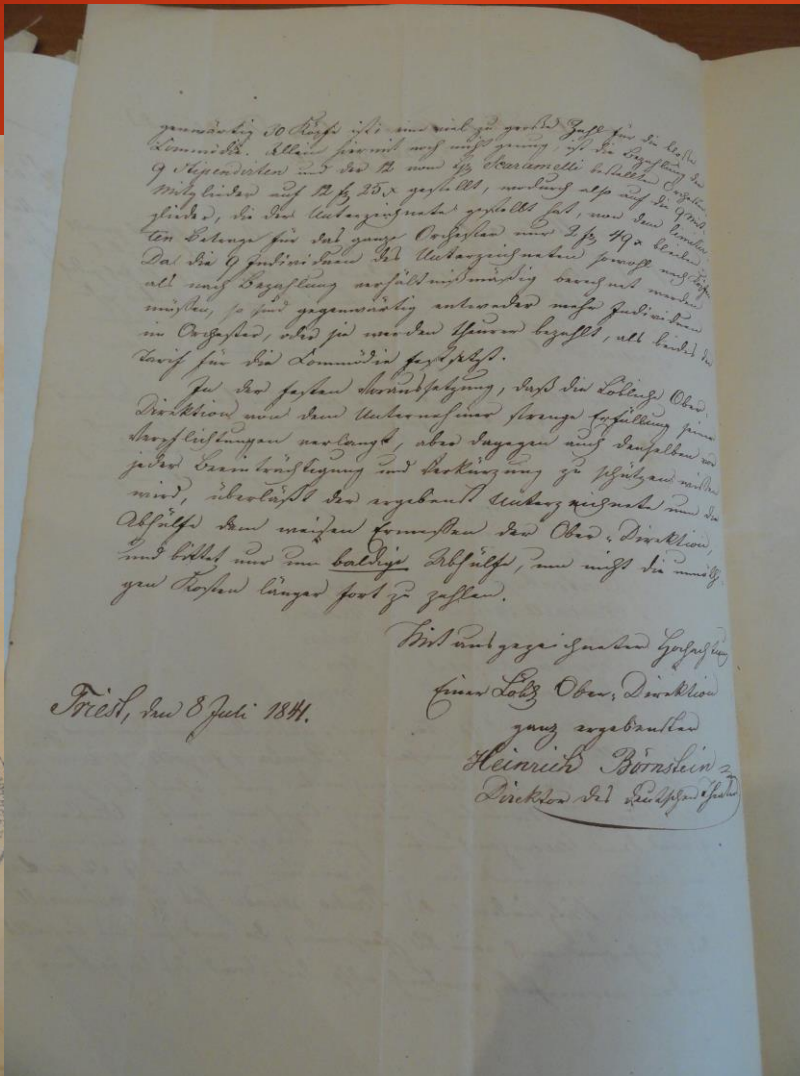 genwärtig 30 Köpfe ist; eine viel zu große Zahl für die bloße
Commödie. Allein hiermit noch nicht genug, ist die Bezahlung der
9 Stipendirten und der 12 vom H Scaramelli bestellten Orchester
Mitglieder auf 12 f 25 x gestellt, wodurch also auf die 9 Mit
glieder, die der Unterzeichnete gestellt hat, von dem
ten Betrage für das ganze Orchester nur 2 f 49 x bleiben.
Da die 9 Individuen des Unterzeichneten sowohl nach Köpfen
als nach Bezahlung verhältnißmäßig berechnet werden
müssen, so sind gegenwärtig entweder mehr Individuen
im Orchester, oder sie werden theurer bezahlt, als beides der
Tarif für die Commödie festsetzt.
In der festen Voraussetzung, daß die Löbliche Ober-
Direktion von dem Unternehmer strenge Erfüllung seiner
Verpflichtungen verlangt, aber dagegen auch denselben vor
jeder Beeinträchtigung und Verkürzung zu schützen wissen
wird, überläßt der ergebenst Unterzeichnete nun die
Abhülfe dem weisen Ermessen der Ober-Direktion,
und bittet nur um baldige Abhülfe, um nicht die unnöthi
gen Kosten länger fort zu zahlen.
Mit ausgezeichneter Hochachtung
Einer Löbl Ober-Direktion
ganz ergebenster
Triest, den 8 Juli 1841.
Heinrich Börnstein
Direktor des deutschen Theaters